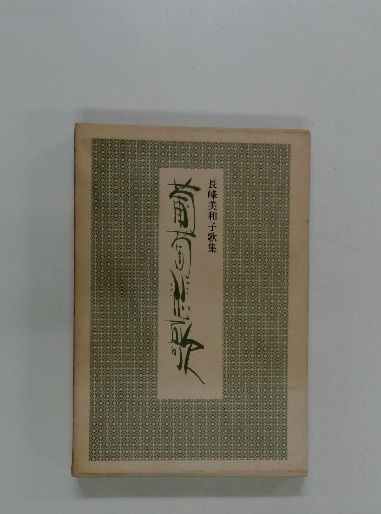 長峰美和子歌集
葡萄悲歌